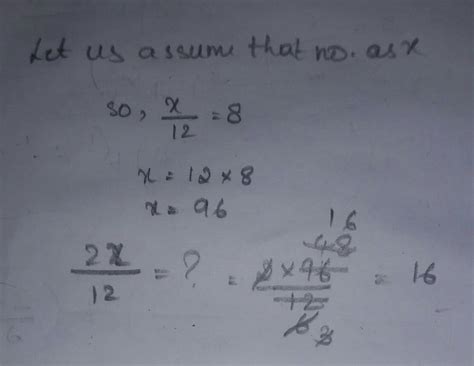 Let us assume that no. as x
so, x/12 = 8
x = 12 × 8
x = 96
2x/12 = ? = 2 × 96/12 = 16
48
16
6 3